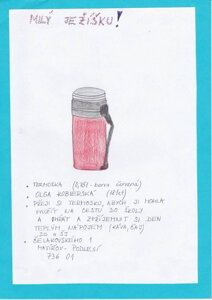 MILÝ JEŽÍŠKU!
• TERMOSKA (0,75l - barva červená)
• OLGA KOBIERSKÁ
• PŘEJI SI TERMOSKU, ABYCH JI MOHLA
POUŽÍT NA CESTU DO ŠKOLY
A OHŘÁT A ZPŘÍJEMNIT SI DEN
TEPLÝM NÁPOJEM (KÁVA, ČAJ)
• ČELAKOVSKÉHO 1
HAVÍŘOV - PODLESÍ
736 01